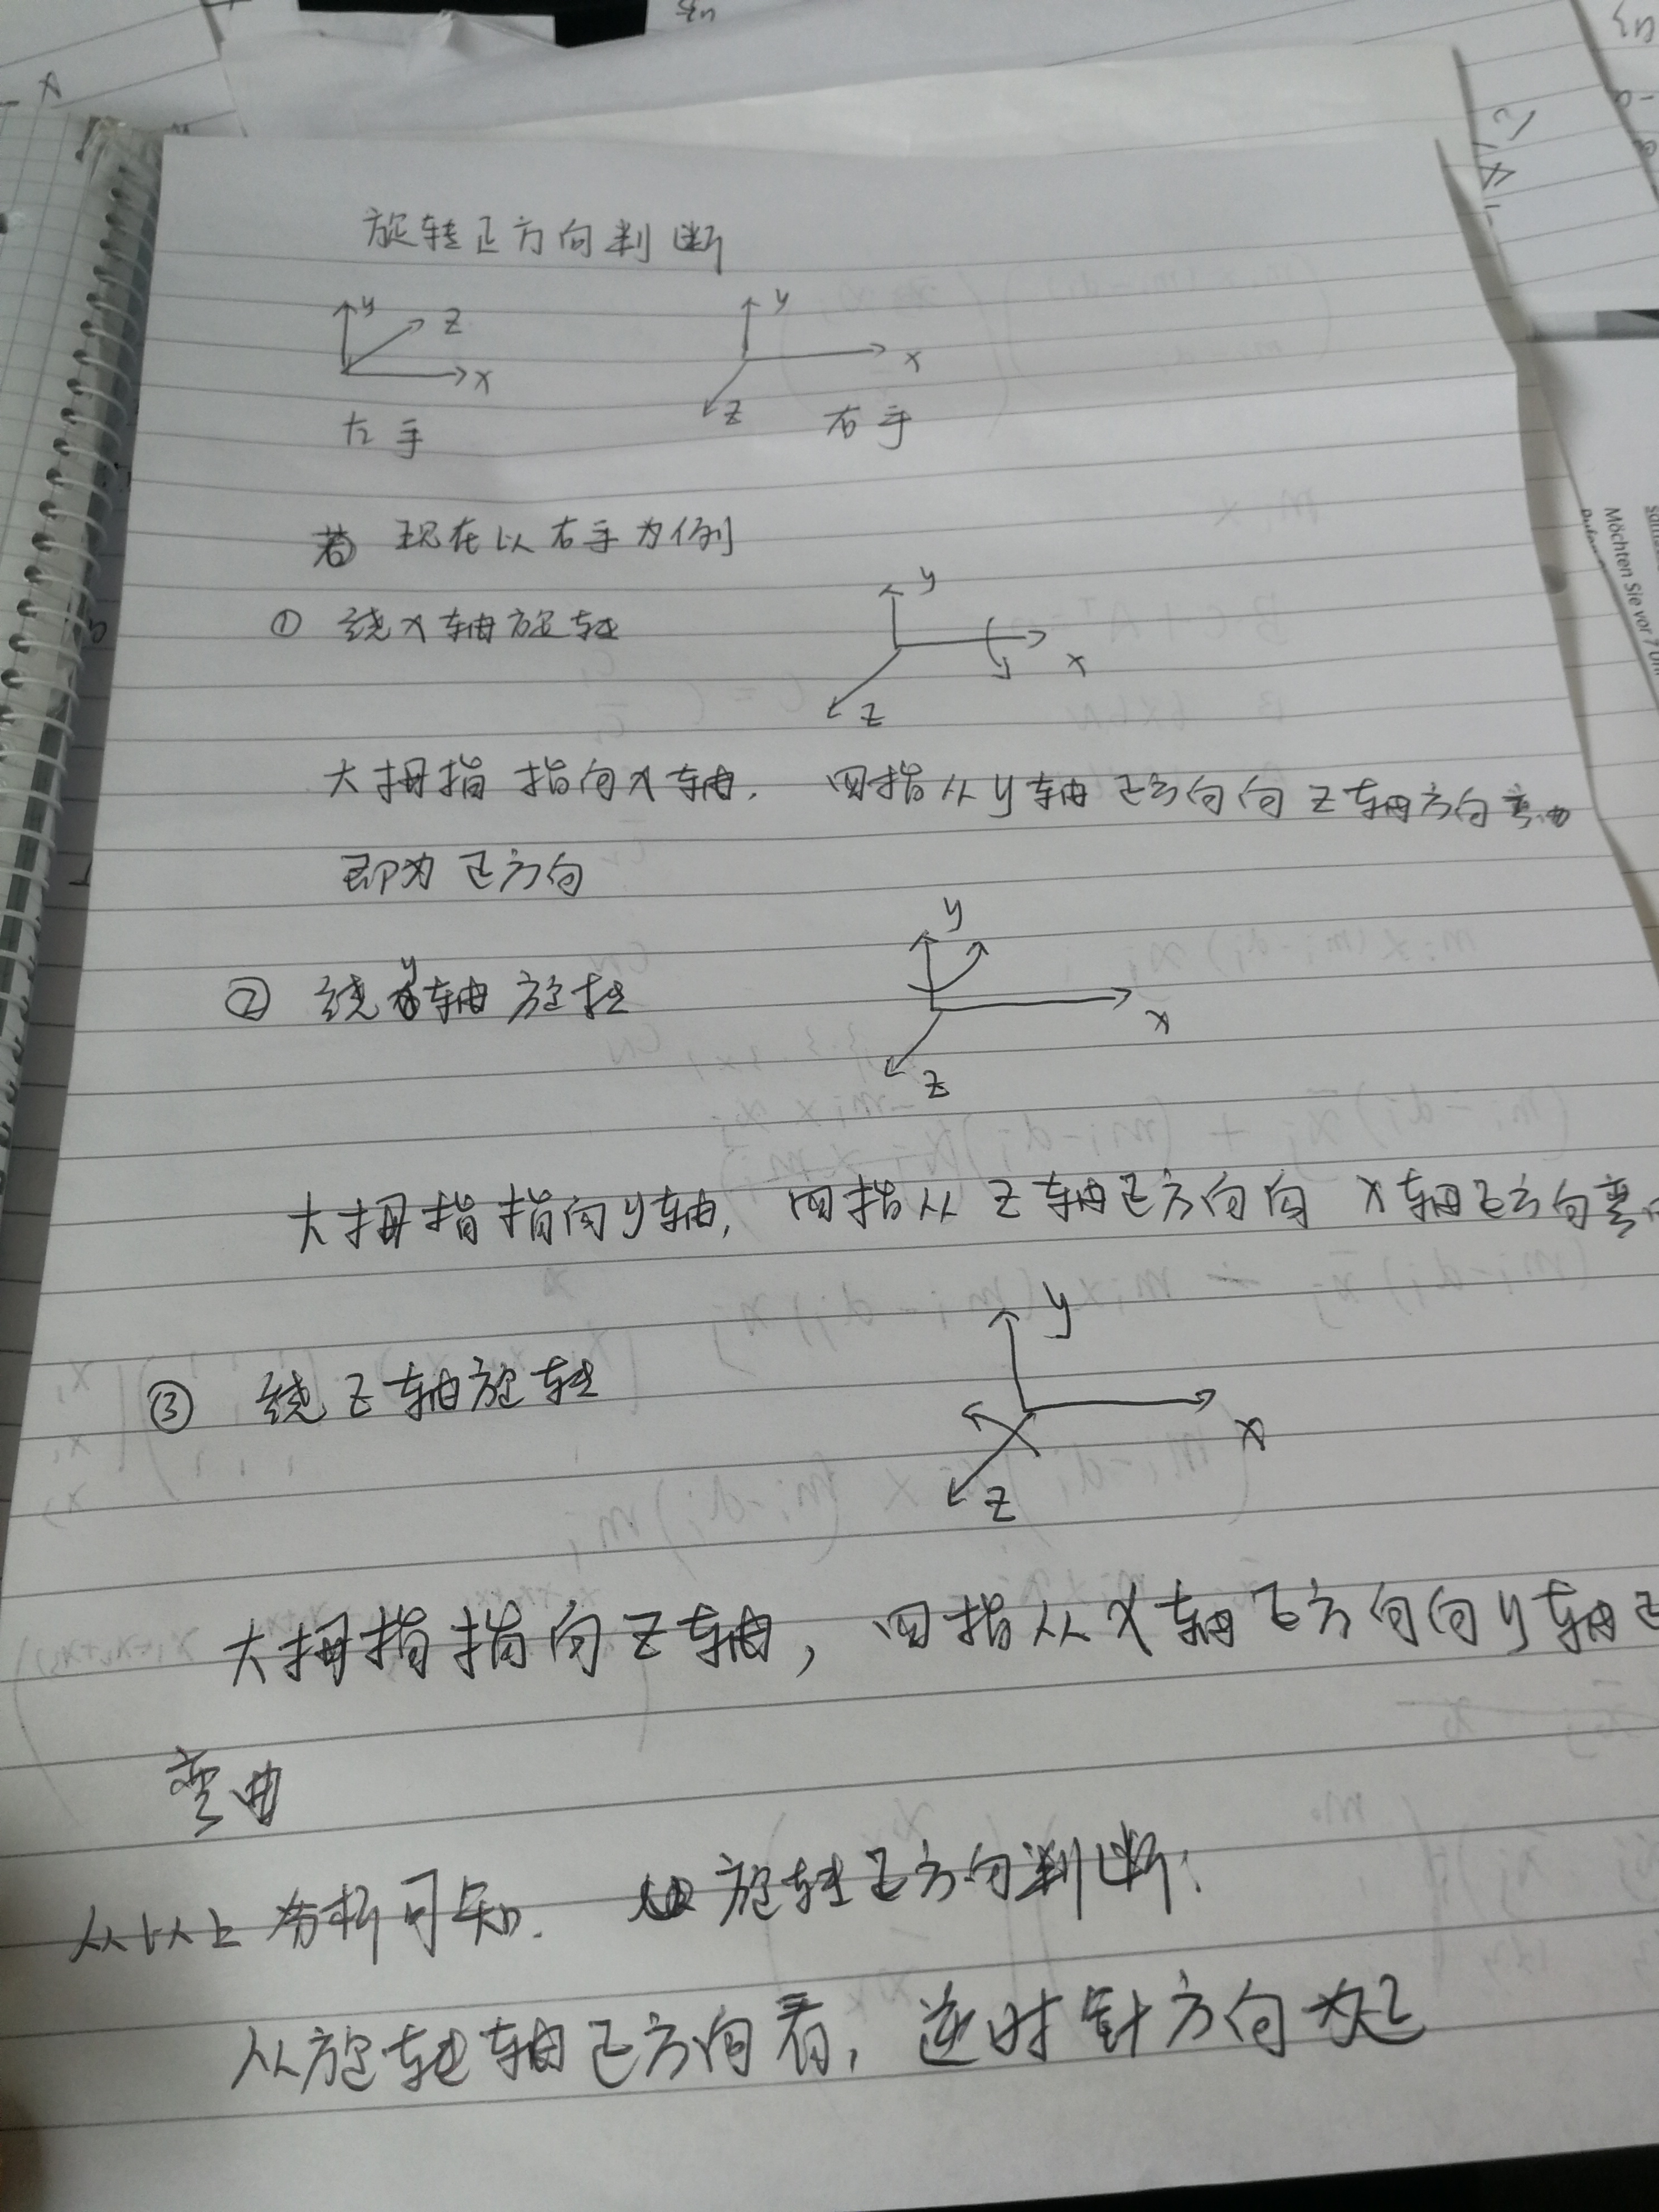 旋转正方向判断
y z x
y x z
左手 右手
若 现在以右手为例
① 绕x轴旋转
y x z
大拇指指向x轴. 四指从y轴正方向向z轴方向弯曲
即为正方向
② 绕y轴旋转
y x z
大拇指指向y轴, 四指从z轴正方向向x轴正方向弯
③ 绕z轴旋转
y x z
大拇指指向z轴, 四指从x轴正方向向y轴正
弯曲
从以上分析可知. 旋转正方向判断:
从旋转轴正方向看, 逆时针方向为正
Möchten Sie vor 7 Uhr